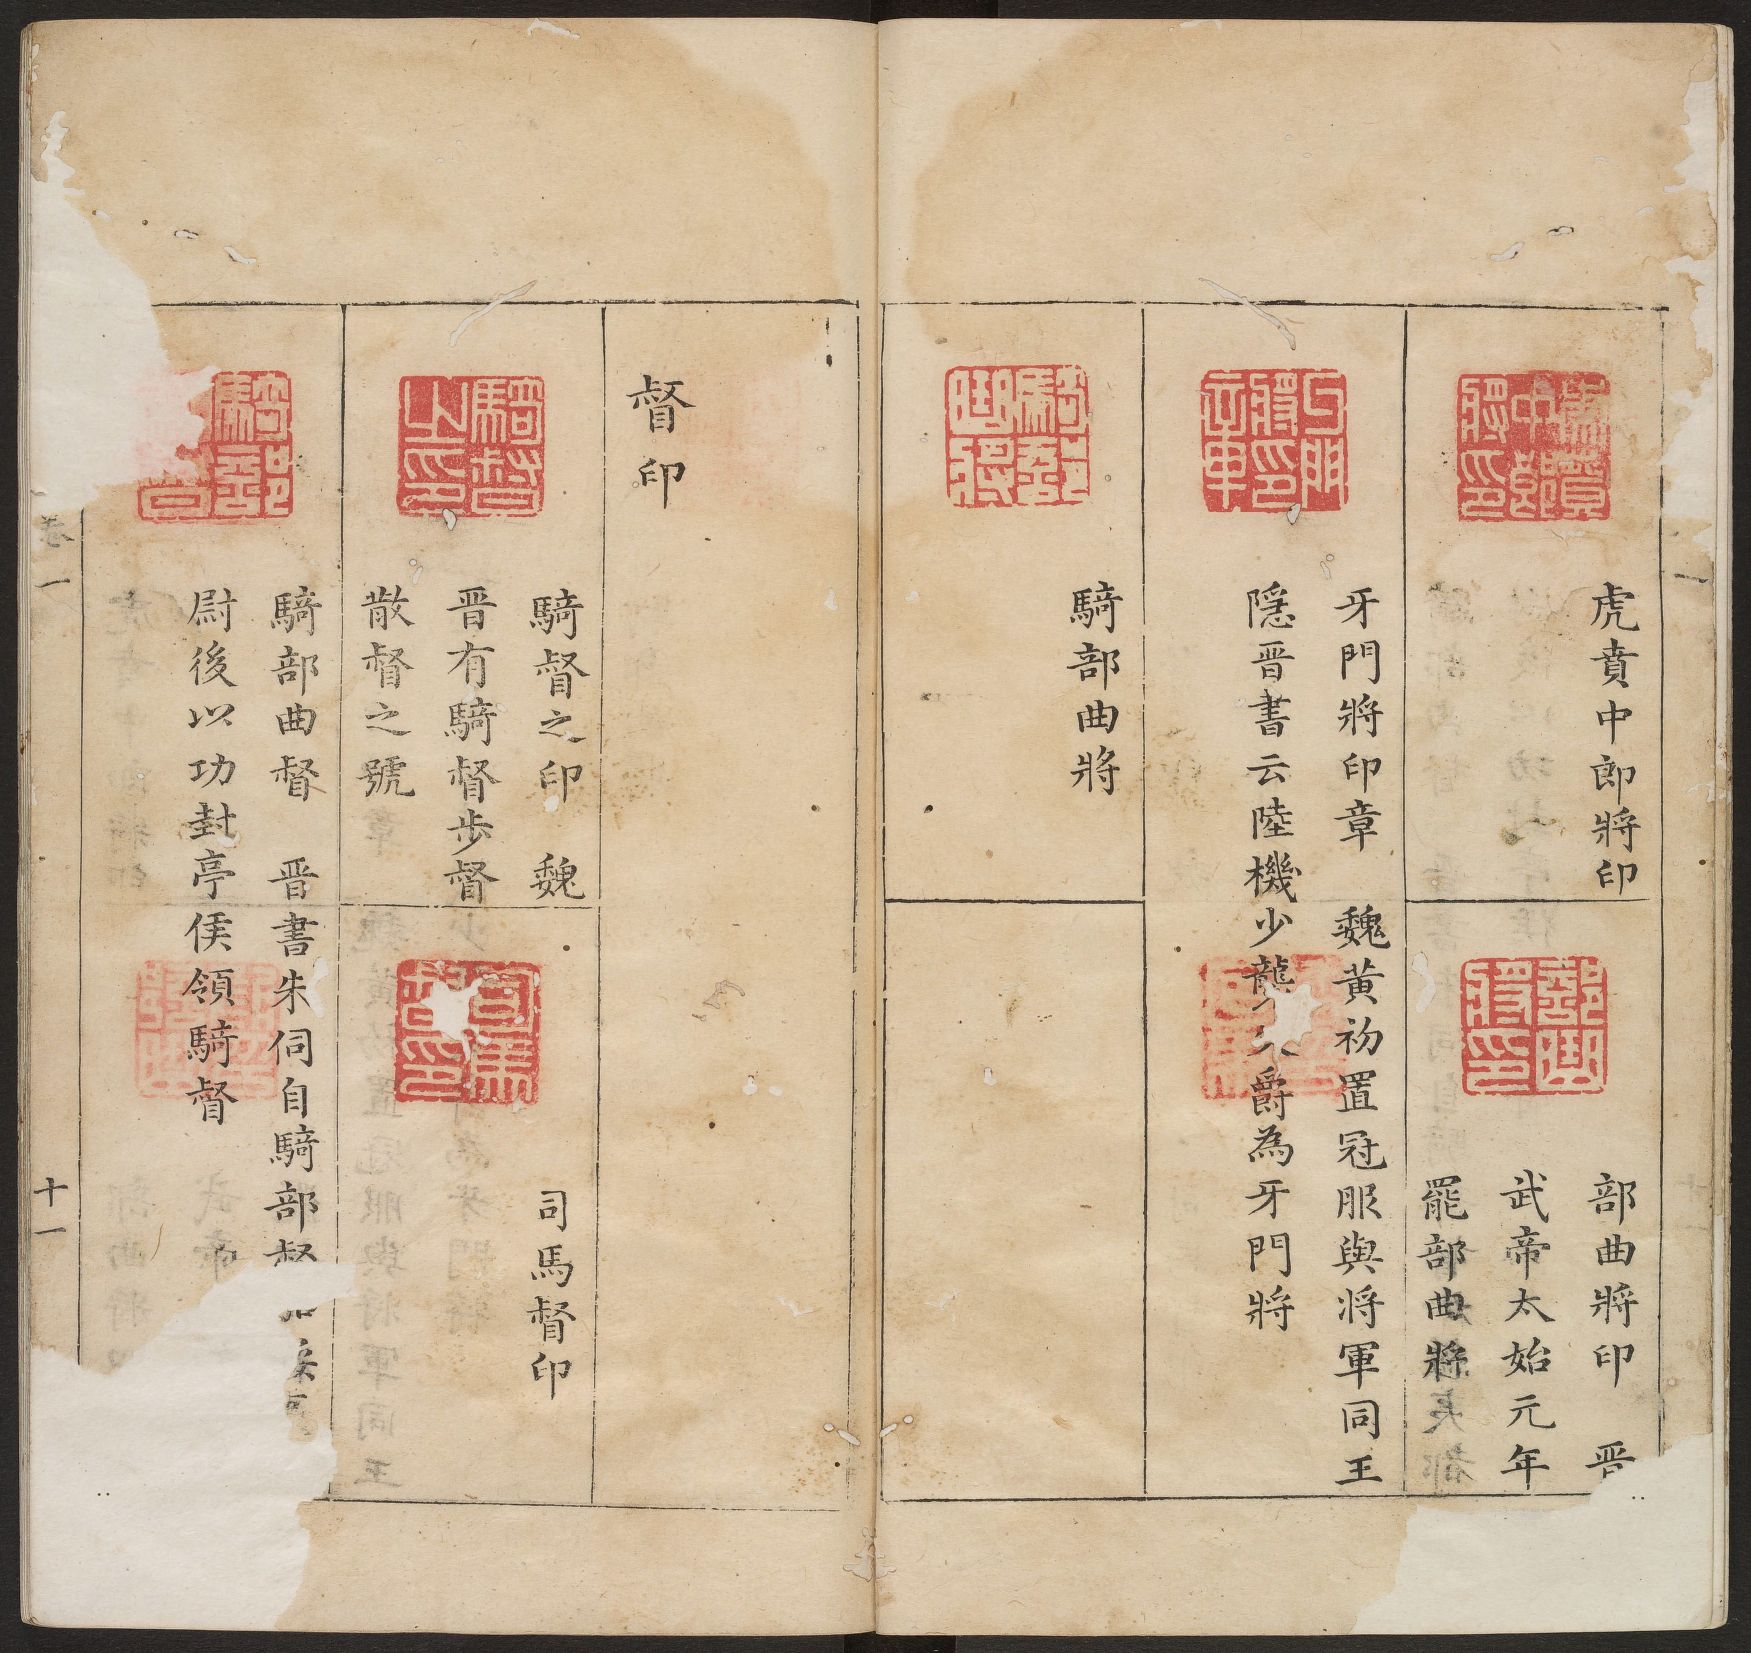 虎賁中郎將印
部曲將印 晋
武帝太始元年
罷部曲將
牙門將印章 魏黃初置冠服與將軍同王
隱晋書云陸機少襲父爵為牙門將
騎部曲將
督印
騎督之印 魏
晋有騎督步督
散督之號
司馬督印
騎部曲督 晋書朱伺自騎部督
尉後以功封亭侯領騎督
卷一
十一